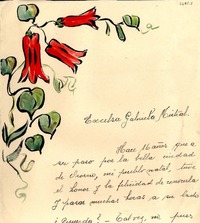 Excelsa Gabriela Mistral:
Hace 16 años que a
su paso por la bella ciudad
de Osorno, mi pueblo natal, tuve
el honor y la felicidad de conocerla
y pasar muchas horas a su lado
¿Recuerda? - Tal vez, no, pues